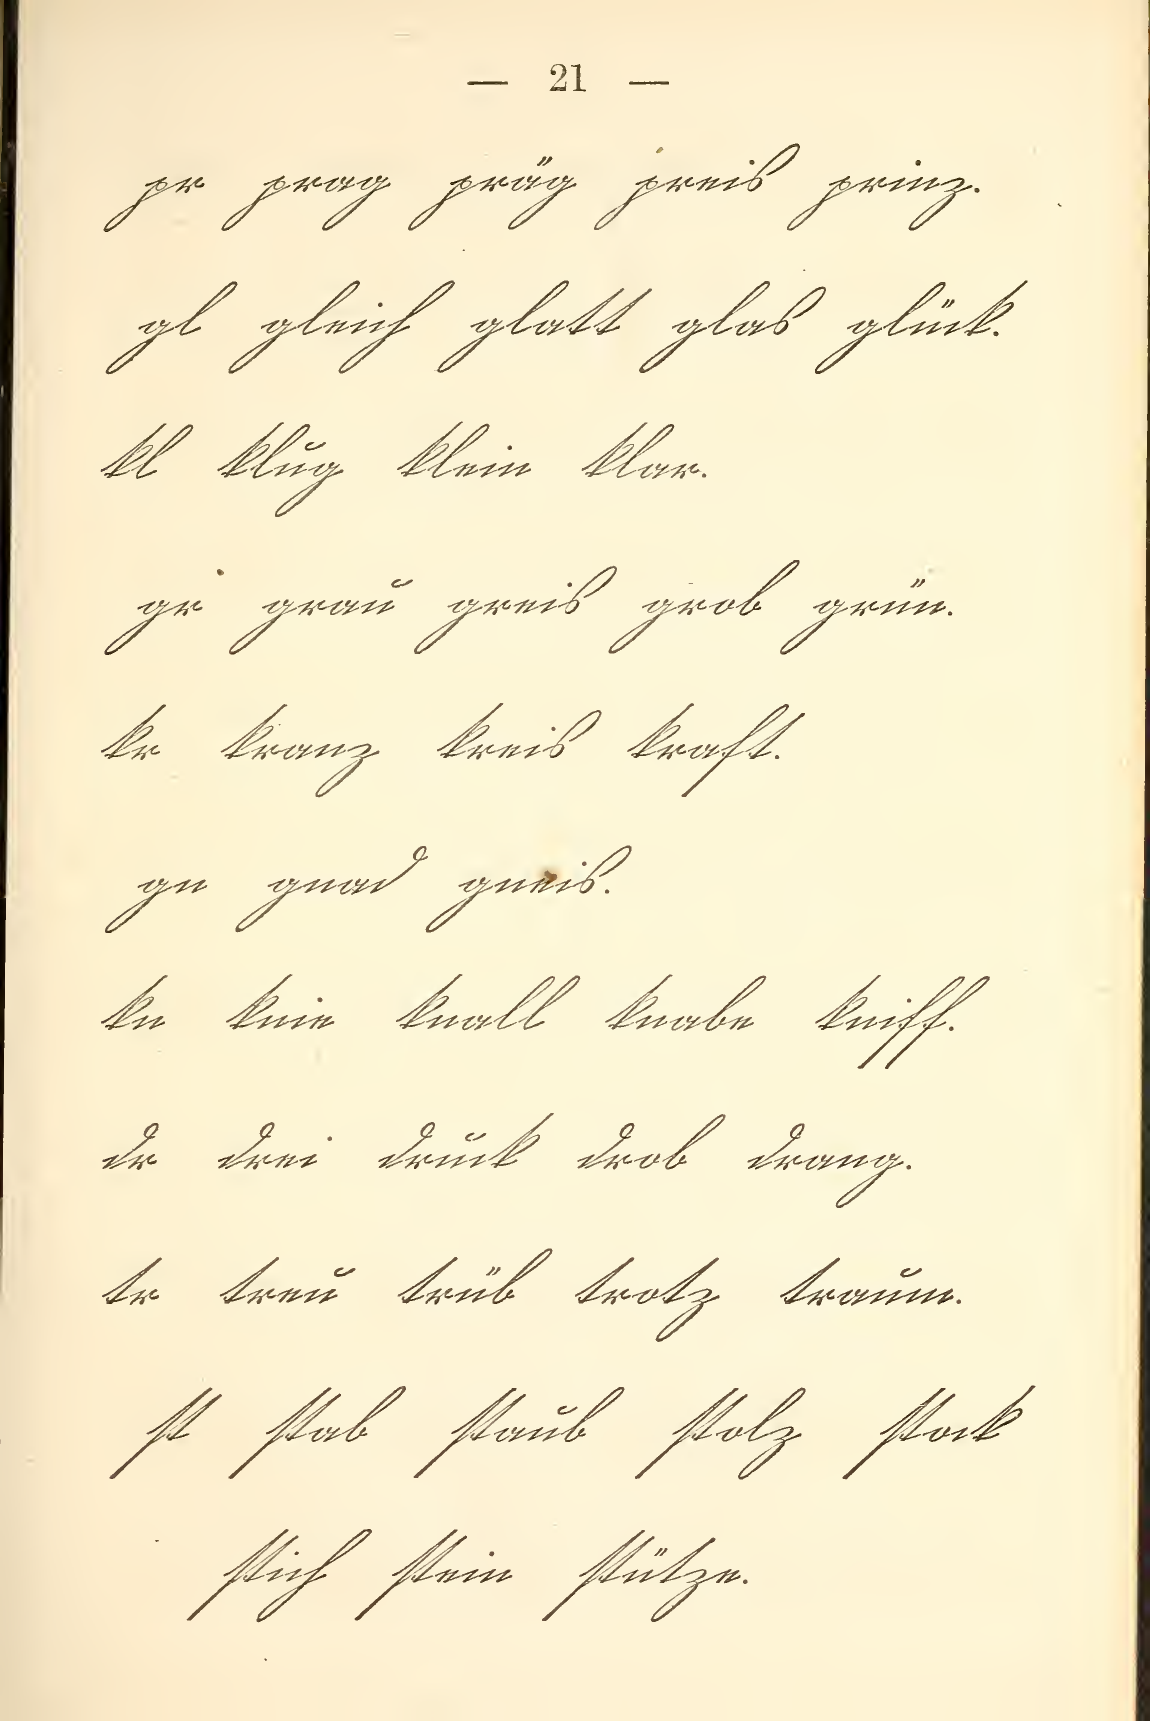 — 21 —
pr prag präg preis prinz.
gl gleich glatt glas glück.
kl klug klein klar.
gr grau greis grob grün.
kr kranz kreis kraft.
gn gnad gneis.
kn knie knall knabe kniff.
dr drei druck drob drang.
tr treu trüb trotz traum.
st stab staub stolz stock
stich stein stütze.